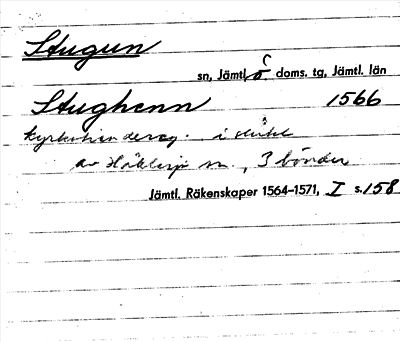 Stugun
sn, Jämtl. ö doms. tg, Jämtl. län
Stughenn 1566
i slutet
av sn, 3 bönder
Jämtl. Räkenskaper 1564–1571, I s. 158